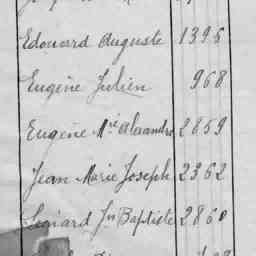 Edouard Auguste 1395
Eugène Julien 968
Eugène Mie Alexandre 2859
Jean Marie Joseph 2362
Legiard Jn Baptiste 2860